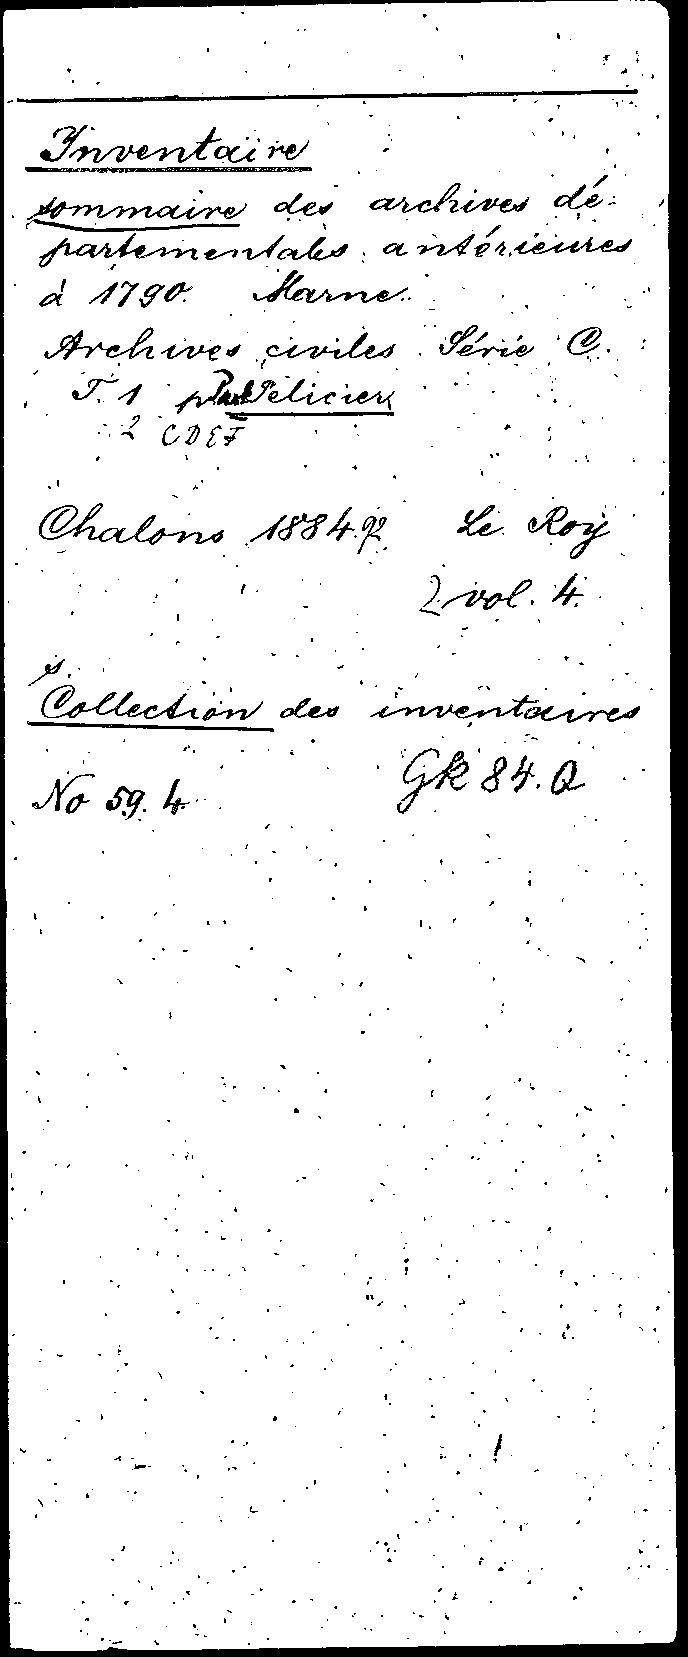 Inventaire
sommaire des archives dé-
partementales antérieures
à 1790. Marne.
Archives civiles Série C.
T. 1 par Pélicier
2 CDEF
Chalons 1884.92 Le Roy
2 vol. 4.
s.
Collection des inventaires
No 59. 4. Gk 84. Q